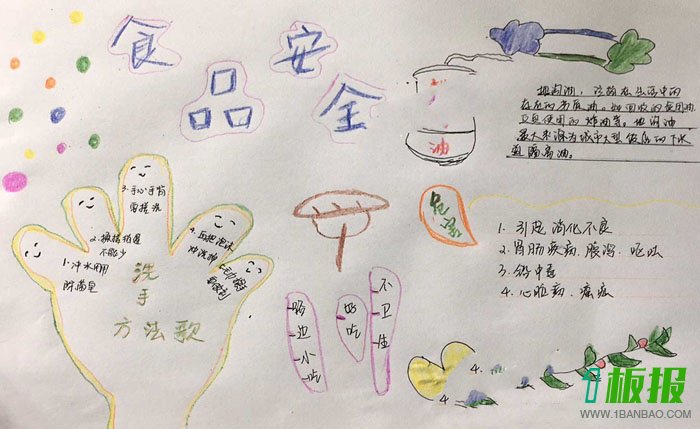 食品安全
地沟油，泛指在生活中的
存在的劣质油。如回收的食用油、
反复使用的炸油等。地沟油
最大来源为城市大型饭店的下水
道隔离油。
油
危害
1. 引起消化不良
2. 胃肠疾病. 腹泻. 呕吐
3. 铅中毒
4. 心脏病. 癌症
3. 手心手背
要搓洗
不能少
1. 冲水
洗
手
方法歌
路边小吃
好吃
不卫生
4.
4.
1板报
WWW.1BANBAO.COM